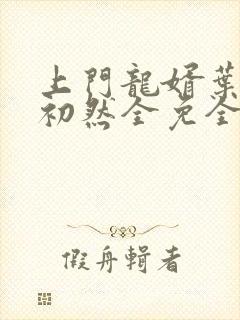 上門龍婿葉
初然全免全
假舟輯者